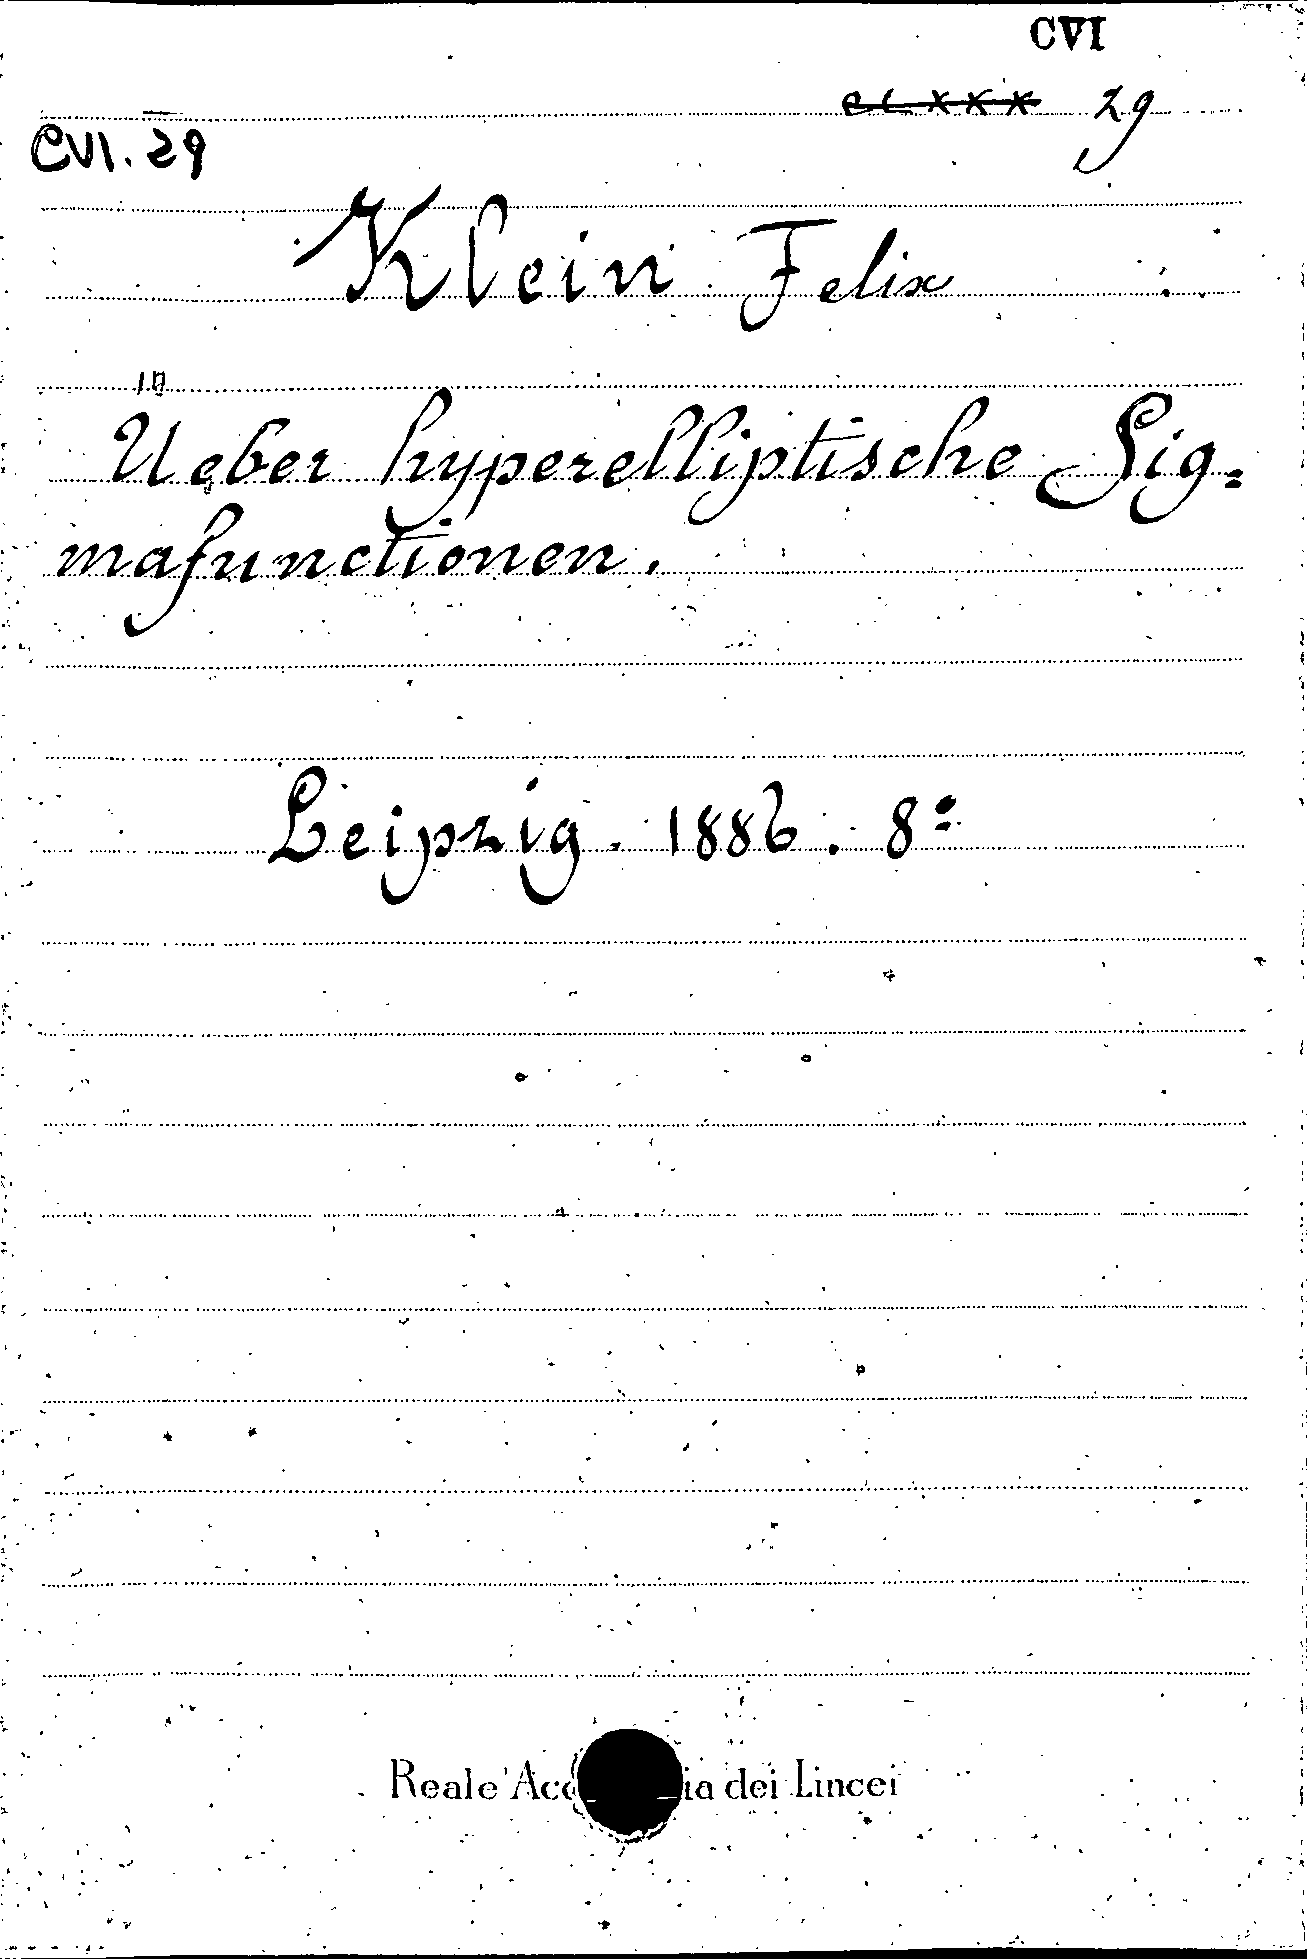 CVI
CLXXX 29
CVI. 29
Klein Felix
Ueber hyperelliptische Sig=
mafunctionen.
Leipzig. 1886. 8°
Reale Acc ia dei Lincei